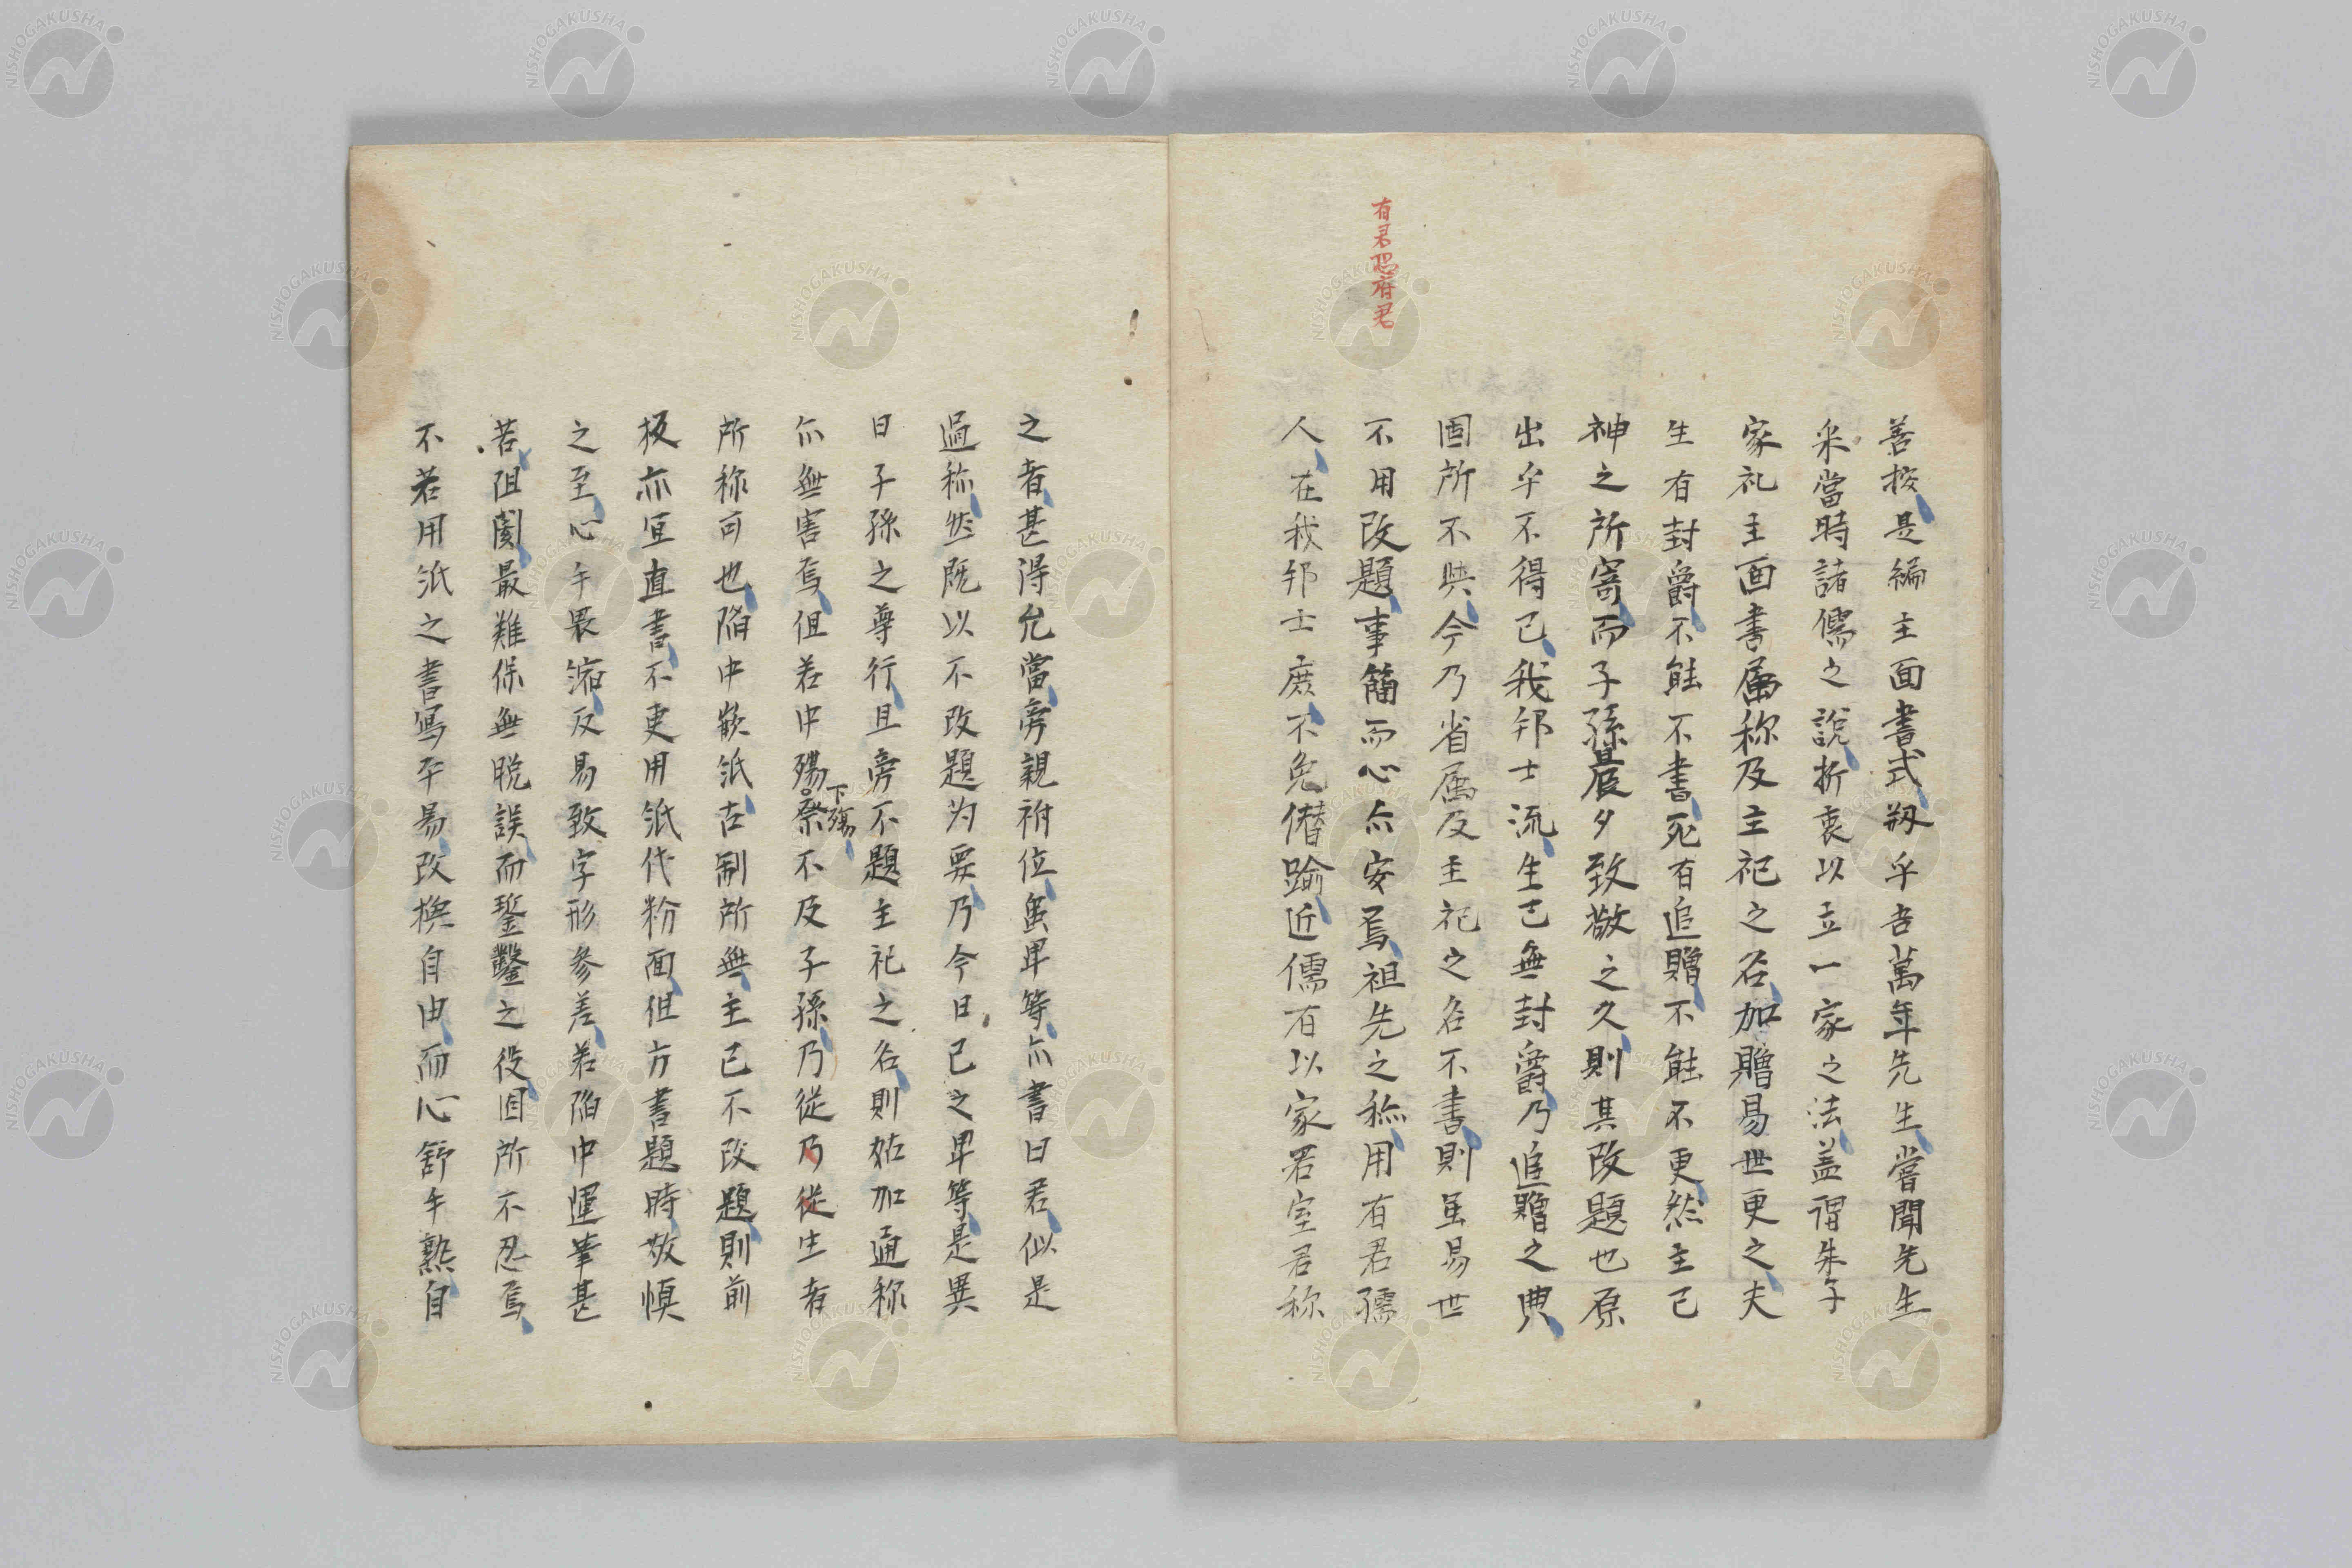 有君恐府君
善按是編主面書式剏乎吾萬年先生嘗聞先生
采當時諸儒之說折衷以立一家之法盖謂朱子
家礼主面書属称及主祀之名加贈易世更之夫
生有封爵不能不書死有追贈不能不更然主已
神之所寄而子孫晨夕致敬之久則其改題也原
出乎不得已我邦士流生已無封爵乃追贈之典
固所不與今乃省属及主祀之名不書則虽易世
不用改題事簡而心亦安焉祖先之称用有君孺
人在我邦士庶不免僭踰近儒有以家君室君称
之者甚得允當旁親祔位虽卑等亦書曰君似是
過称然既以不改題为要乃今日已之卑等是異
日子孫之尊行且旁不題主祀之名則姑加通称
亦無害焉但若中殤下殤祭不及子孫乃從乃從生者
所称可也陥中嵌紙古制所無主已不改題則前
板亦宜直書不更用紙代粉面但方書題時敬慎
之至心手畏縮反易致字形参差若陥中運筆甚
若阻闔最難保無脱誤而鏨鑿之役固所不忍焉
不若用紙之書写平易改換自由而心舒手熟自
NISHOGAKUSHA